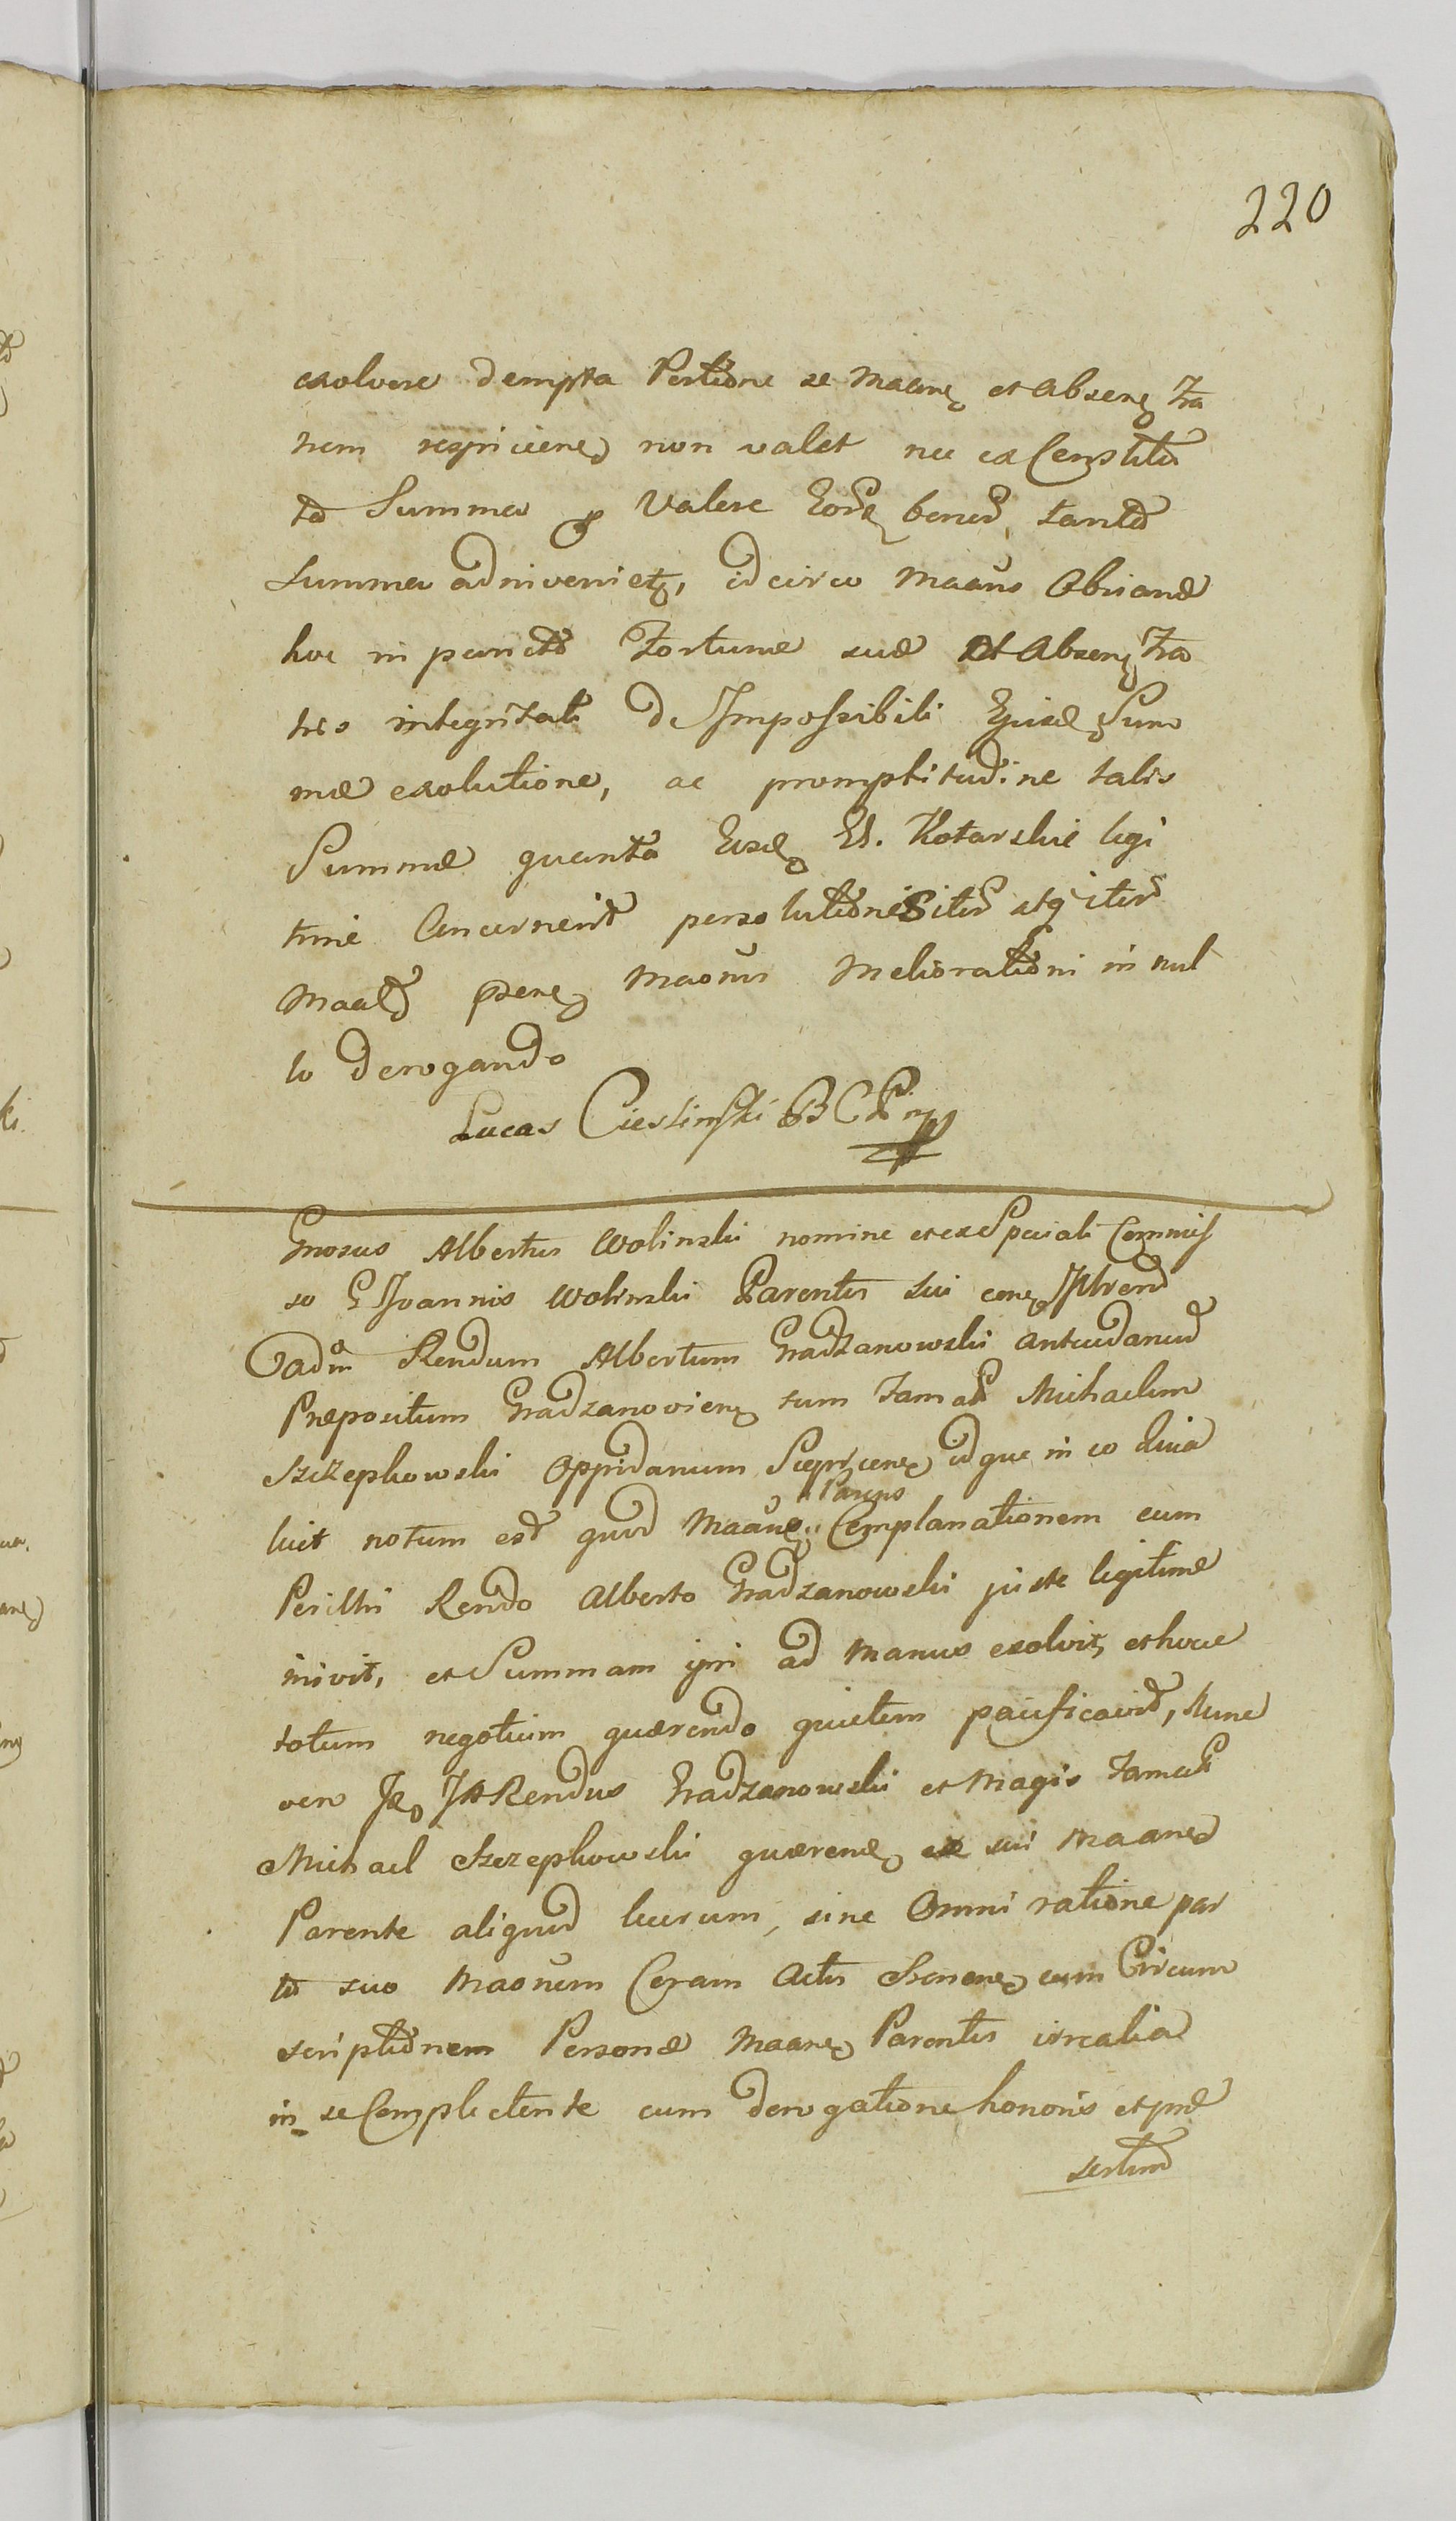 220
exolvere dempta Portione se Maane et Absene Fra
trem respiciene non valet nec ex Constitu
ta Summa & Valere Eore bene tanta
Summa adniveniet, idcirco Maans Obviand
hoc in puncto Fortunæ suæ et Absene Fra
tris integritati d Impossibili Ejusd Sum
mæ exolutione, ac promptitudine talis
Summæ quanta Eisde El. Kotarskie legi
time Concernent persolutionis iter atq iter
Maatd psene Maonis Meliorationi in nul
lo derogando
Lucas Ciesłinski B C P
Gnosus Albertus Wolinski nomine et ex Speciali Commis
so G Joannis Wolinski Parentis sui cone Illrem
adm Rendum Albertum Gradzanowski antecdaneu
Præpositum Gradzanoviene tum Famat Michaelem
Szczepkowski Oppidanum Siepricene idque in eo Quia
licet notum est quod Maane Parens Complanationem cum
Perillri Rendo Alberto Gradzanowski juste legitime
inivit, et Summam ipsi ad Manus exolvit, et hocce
totum negotium quærendo quietem pacificavit, Nunc
vero Ide IARendus Gradzanowski et Magis Famat
Michael Szczepkowski quærene ex sui Maane
Parente aliquid lucrum, sine Omni ratione par
te suo Maonem Coram Actis Srenene cum Circum
scriptionem Personæ Maane Parentis irealia
in se Complectente cum derogatione honoris et præ
sertim